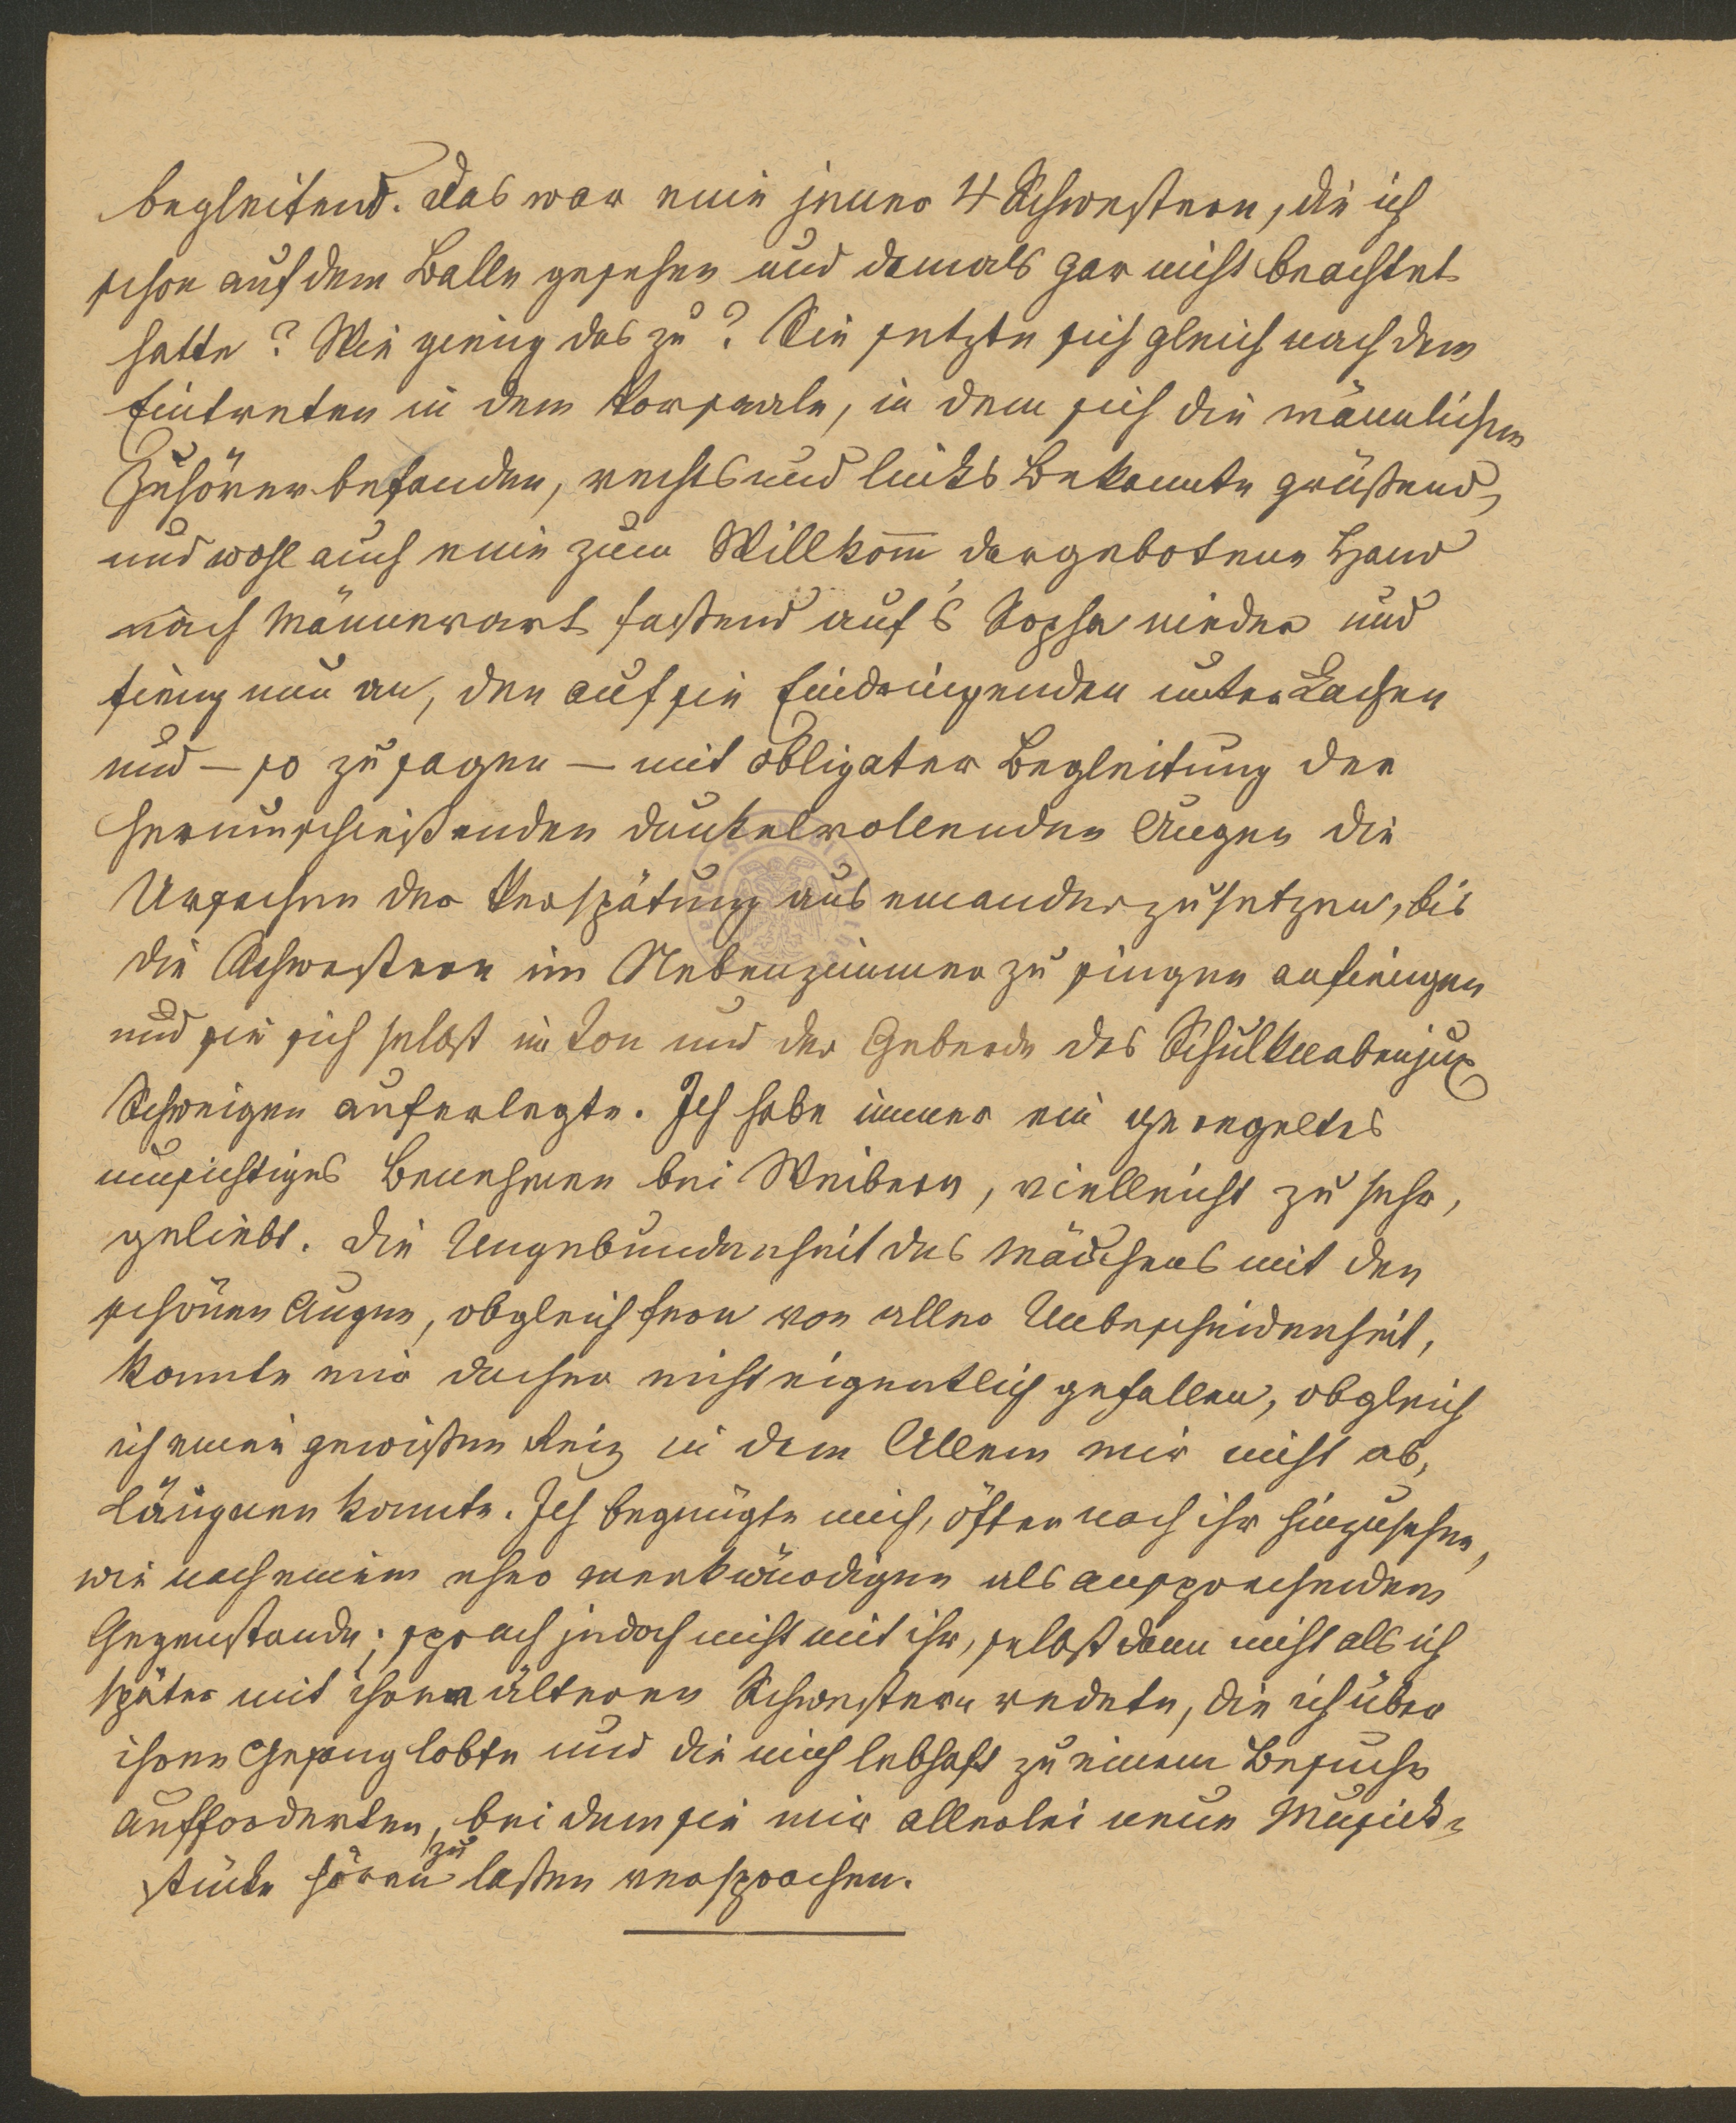 begleitend. Das war eine jener 4 Schwestern, die ich
schon auf dem Balle gesehen und damals gar nicht beachtet
hatte? Wie gieng das zu? Sie setzte sich gleich nach dem
Eintreten in dem Vorsaale, in dem sich die männlichen
Zuhörer befanden, rechts und links Bekannte grüßend,
und wohl auch eine zum Willkom̅ dargebotene Hand
nach Männerart fassend auf's Sopha nieder und
fieng nun an, den auf sie Eindringenden unter Lachen
und – so zu sagen – mit obligater Begleitung der
herumschießenden dunkelrollenden Augen die
Ursachen der Verspätung aus einanderzusetzen, bis
die Schwestern im Nebenzimmer zu singen anfiengen
und sie sich selbst im Ton und der Geberde des Schulknabenjux
Schweigen auferlegte. Ich habe immer ein geregeltes
umsichtiges Benehmen bei Weibern, vielleicht zu sehr,
geliebt. Die Ungebundenheit des Mädchens mit den
schönen Augen, obgleich fern von aller Unbescheidenheit,
konnte mir daher nicht eigentlich gefallen, obgleich
ich einen gewissen Reiz in dem Allem mir nicht ab,
läugnen konnte. Ich begnügte mich, öfter nach ihr hinzusehen,
wie nach einem eher merkwürdigen als ansprechenden
Gegenstande; sprach jedoch nicht mit ihr, selbst dann nicht als ich
später mit ihren älteren Schwestern redete, die ich über
ihren Gesang lobte und die mich lebhaft zu einem Besuche
aufforderten, bei dem sie mir allerlei neue Musick-
stücke hören zu lassen versprachen.